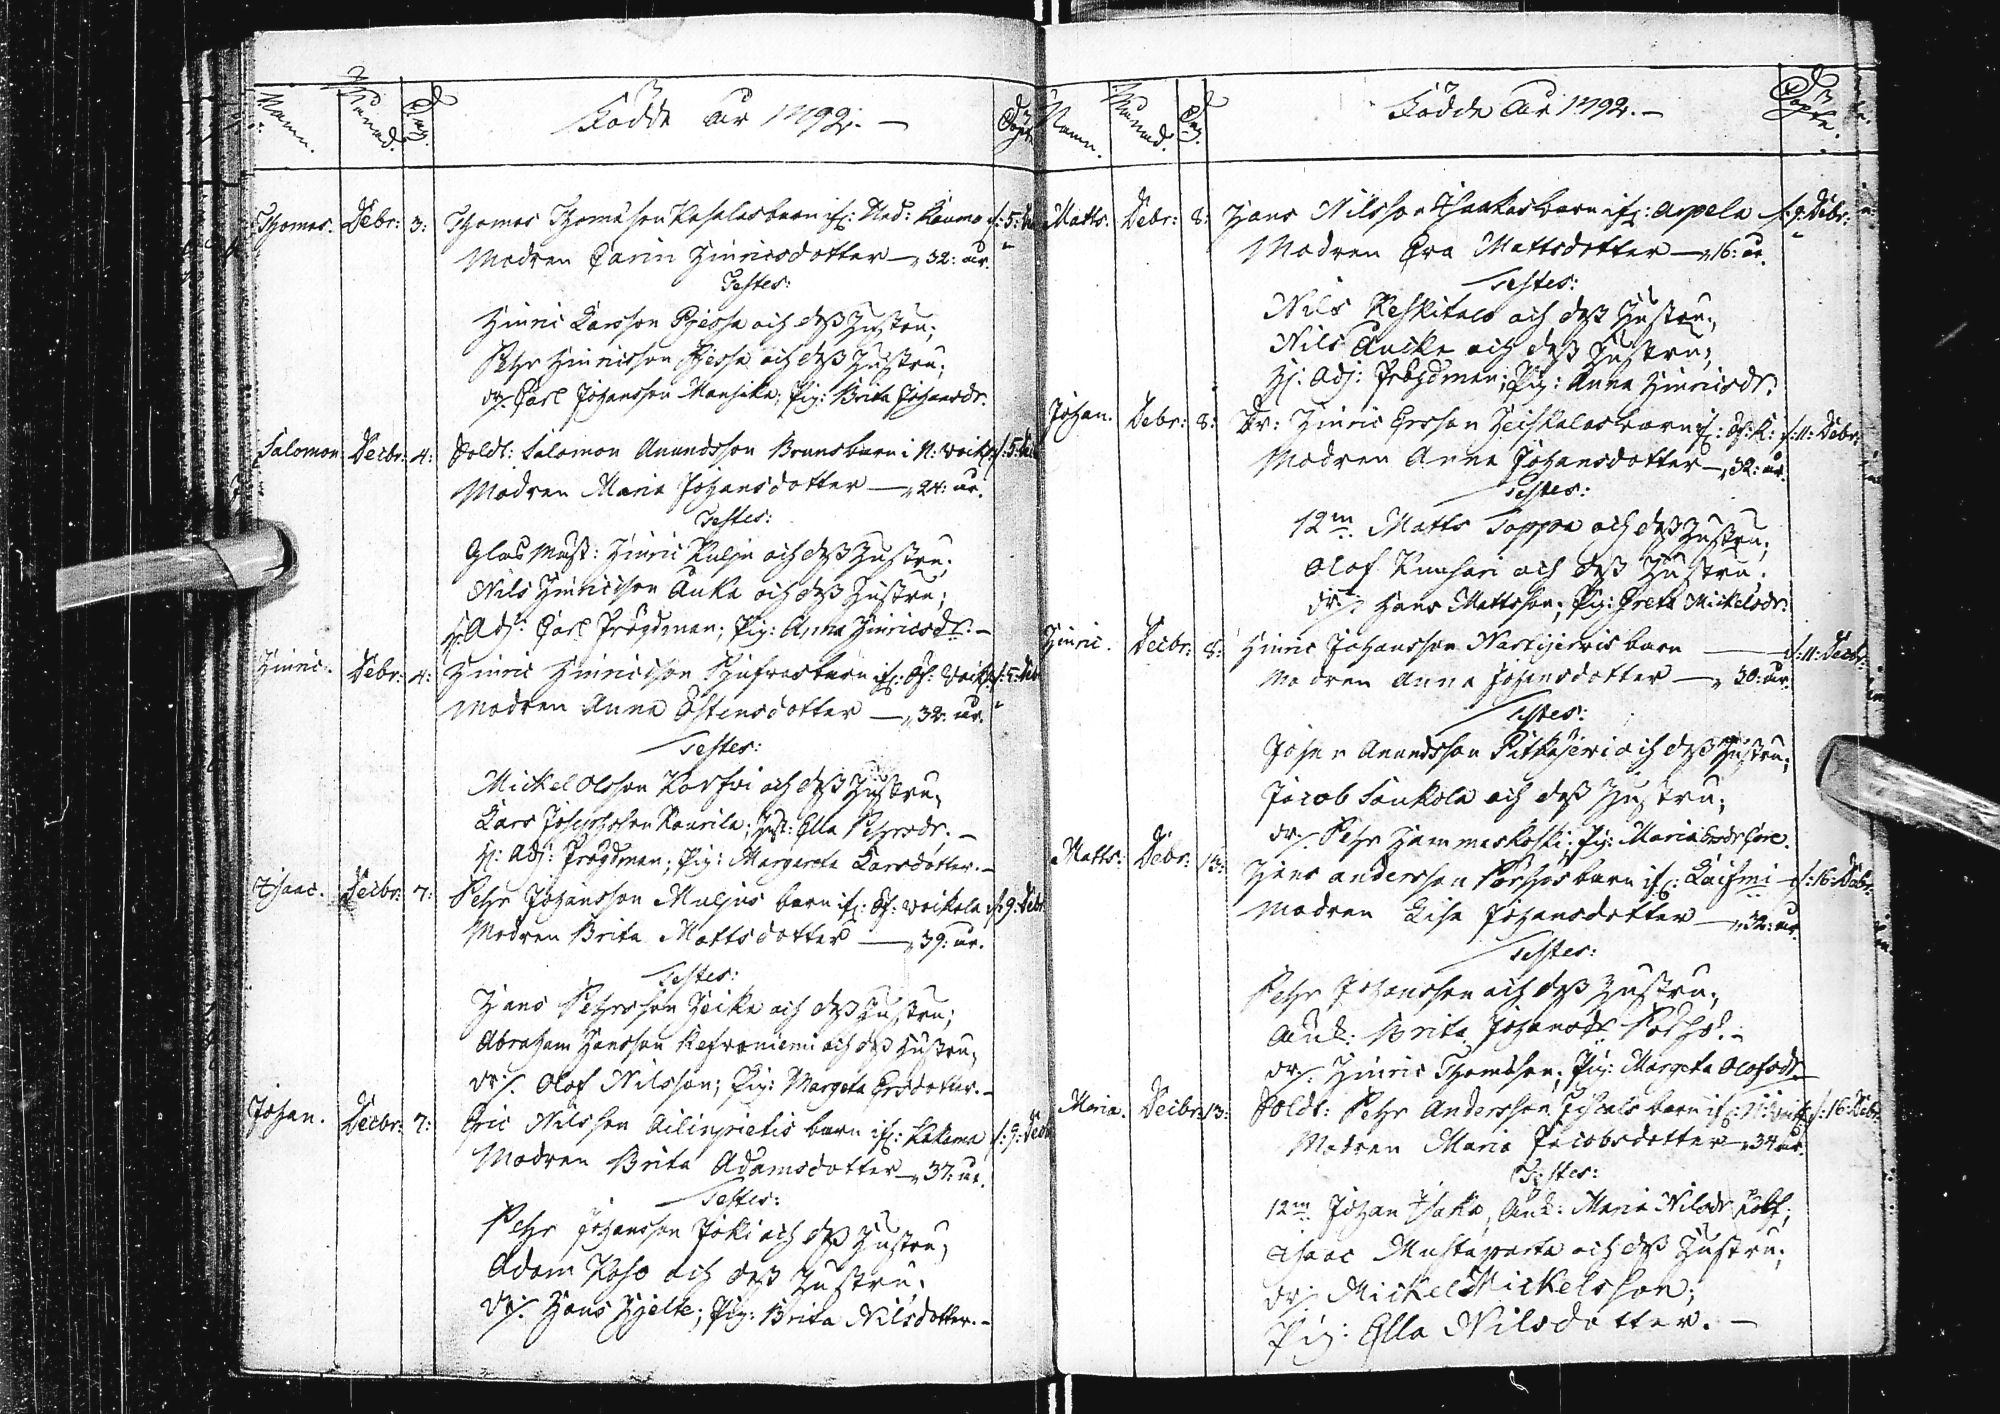 Namn. Månad. Dag. Födde År 1792. – Döpte
Thomas. Debr: 3: Thomas Thomasson barn if: Ned: Rauma d: 5:
Modren Carin Hinricsdotter — 32: år.
Testes:
Hinric Larsson och dess Hustru;
Pehr Hinricsson och dess Hustru;
dr. Carl Johansson Manhika; Pig: Brita Johansdr.
Salomon Decbr: 4: Soldt: Salomon Anundsson Bruns barn i N: d: 5:
Modren Maria Johansdotter — 24: år.
Testes:
Glas Mäst: Hinric och dess Hustru;
Nils Hinricsson Auka och dess Hustru;
H: Adj: Carl Frögdman; Pig: Anna Hinricsdr. –
Hinric. Debr: 4: Hinric Hinricsson barn if: Öf: d: 5: Debr
Modren Anna Östensdotter — 32: år.
Testes:
Mickel Olsson och dess Hustru;
Lars Josephsson Kaurila; Hust: Ella Pehrsdr. –
H: Adj: Frögdman; Pig: Margareta Larsdotter. –
Isaac. Decbr: 7: Pehr Johansson Muljus barn if: Öf: Woikala d: 9: Debr
Modren Brita Mattsdotter — 39: år.
Testes:
Hans Pehrsson Heika och dess Hustru;
Abraham Hansson och dess Hustru;
dr. Olof Nilsson; Pig: Margeta Ersdotter. –
Johan. Decbr: 7: Eric Nilsson Ailinpietis barn if: Kakama d: 9: Decbr
Modren Brita Adamsdotter — 37: år.
Testes:
Pehr Johansson Joki och dess Hustru;
Adam och dess Hustru;
dr. Hans Hjelte; Pig: Brita Nilsdotter. –
Namn. Månad. Dag. Födde År 1792. – Döpte.
Matts. Debr: 8: Hans Nilsson Isaakas barn if: Arpela d: 9: Debr:
Modren Eva Mattsdotter — 16: år.
Testes:
Nils Keskitalo och dess Hustru;
Nils Aucka och dess Hustru;
H: Adj: Frögdman; Pig: Anna Hinricsdr.
Johan. Debr: 8: Dr: Hinric Ersson Heiskalas barn if: Öf: K: d: 11: Debr:
Modren Anna Johansdotter — 32: år.
Testes:
12m Matts Toppa och dess Hustru;
Olof och dess Hustru;
dr. Hans Mattsson; Pig: Greta Mickelsdr.
Hinric. Decbr: 8: Hinric Johansson barn — d: 11: Decbr:
Modren Anna Johansdotter — 30: år.
Testes:
Johan Anundsson Pitkäjerwi och dess Hustru;
Jacob Saukola och dess Hustru;
dr. Pehr Hammaskoski; Pig: Maria
Matts: Debr: 13: Hans Andersson barn if: d: 16: Debr:
Modren Lisa Johansdotter — 32: år.
Testes:
Pehr Johansson och dess Hustru;
Änk: Brita Johansdr
dr. Hinric Thomsson; Pig: Margeta Olofsdr.
Maria. Decbr: 13: Soldt: Pehr Andersson barn if: d: 16: Debr:
Modren Maria Jacobsdotter — 34 år.
Testes:
12m Johan Isaka; Änk: Maria Nilsdr
Isaac Mustaparta och dess Hustru;
dr. Mickel Mickelsson;
Pig: Ella Nilsdotter. –